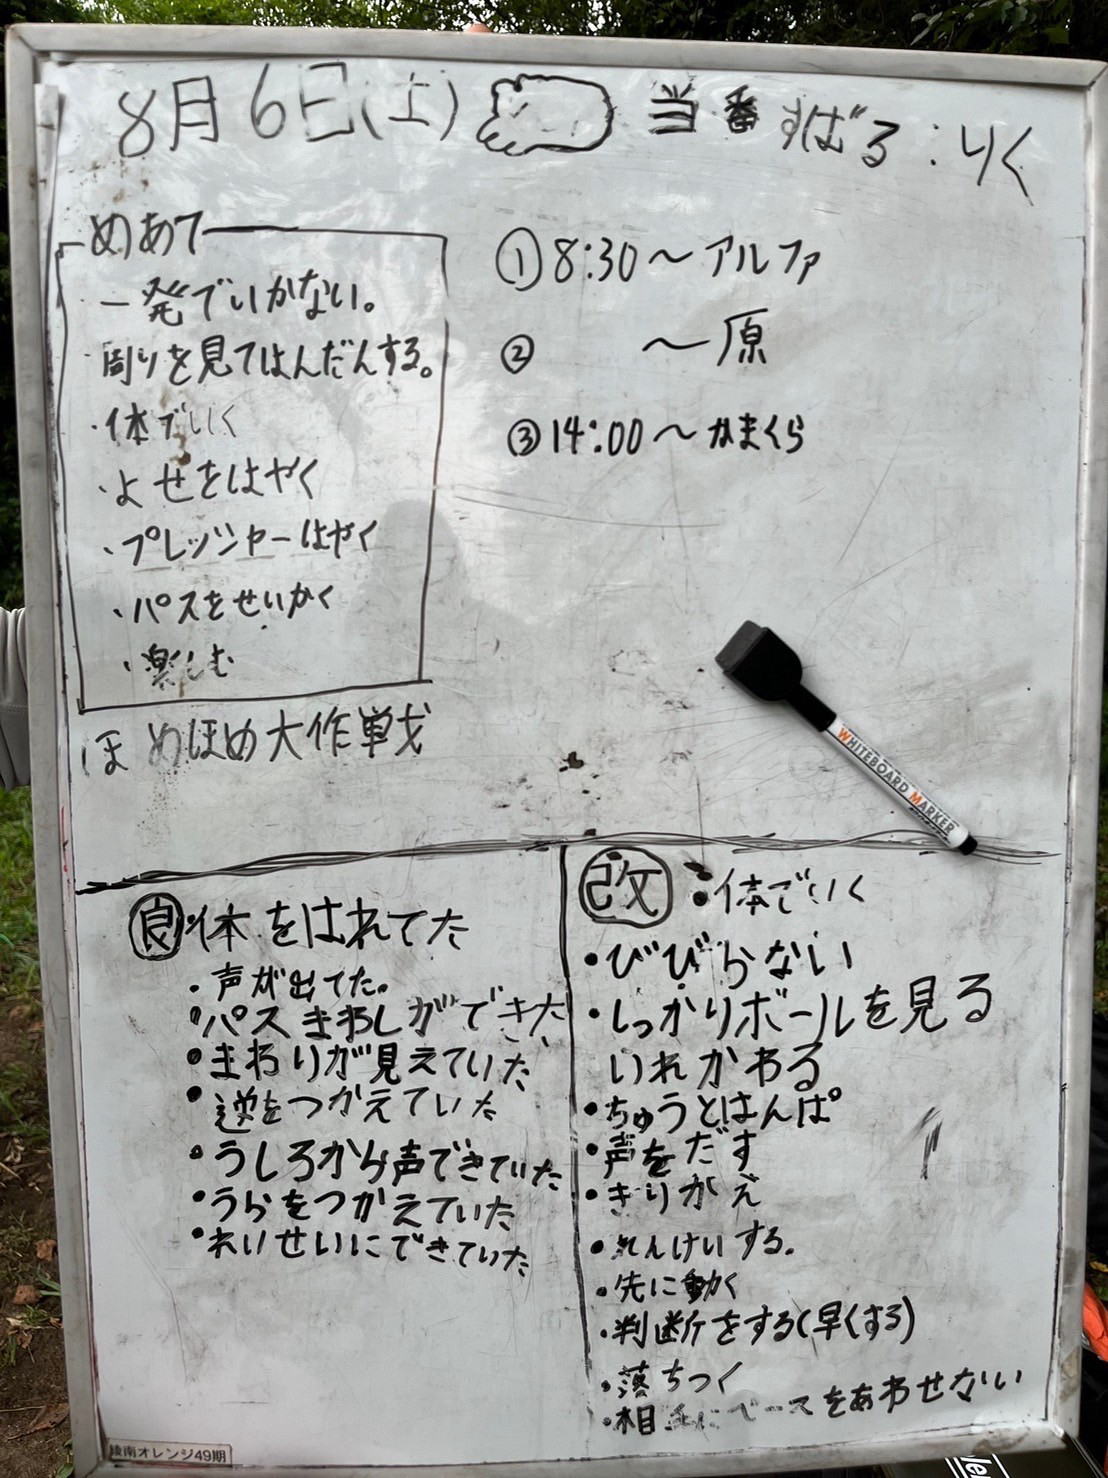 8月6日(土) 当番 すばる:りく
めあて
一発でいかない。
周りを見てはんだんする。
・体でいく
・よせをはやく
・プレッシャーはやく
・パスをせいかく
・楽しむ
ほめほめ大作戦
①8:30〜アルファ
② 〜原
③14:00〜かまくら
WHITEBOARD MARKER
良・体をはれてた
・声が出てた。
・パスまわしができた
・まわりが見えていた
・逆をつかえていた
・うしろから声できていた
・うらをつかえていた
・れいせいにできていた
改・体でいく
・びびらない
・しっかりボールを見る
いれかわる
・ちゅうとはんぱ
・声をだす
・きりかえ
・れんけいする。
・先に動く
・判断をする(早くする)
・落ちつく
・相手にペースをあわせない
南オレンジ49期